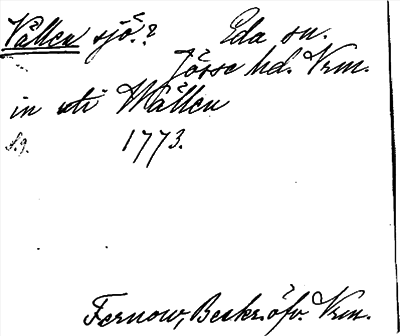 Vällen sjö.? Eda sn.
Jösse hd. Vrm.
in uti Wällen
S. 9. 1773.
Fernow, Beskr. öfv. Vrm.